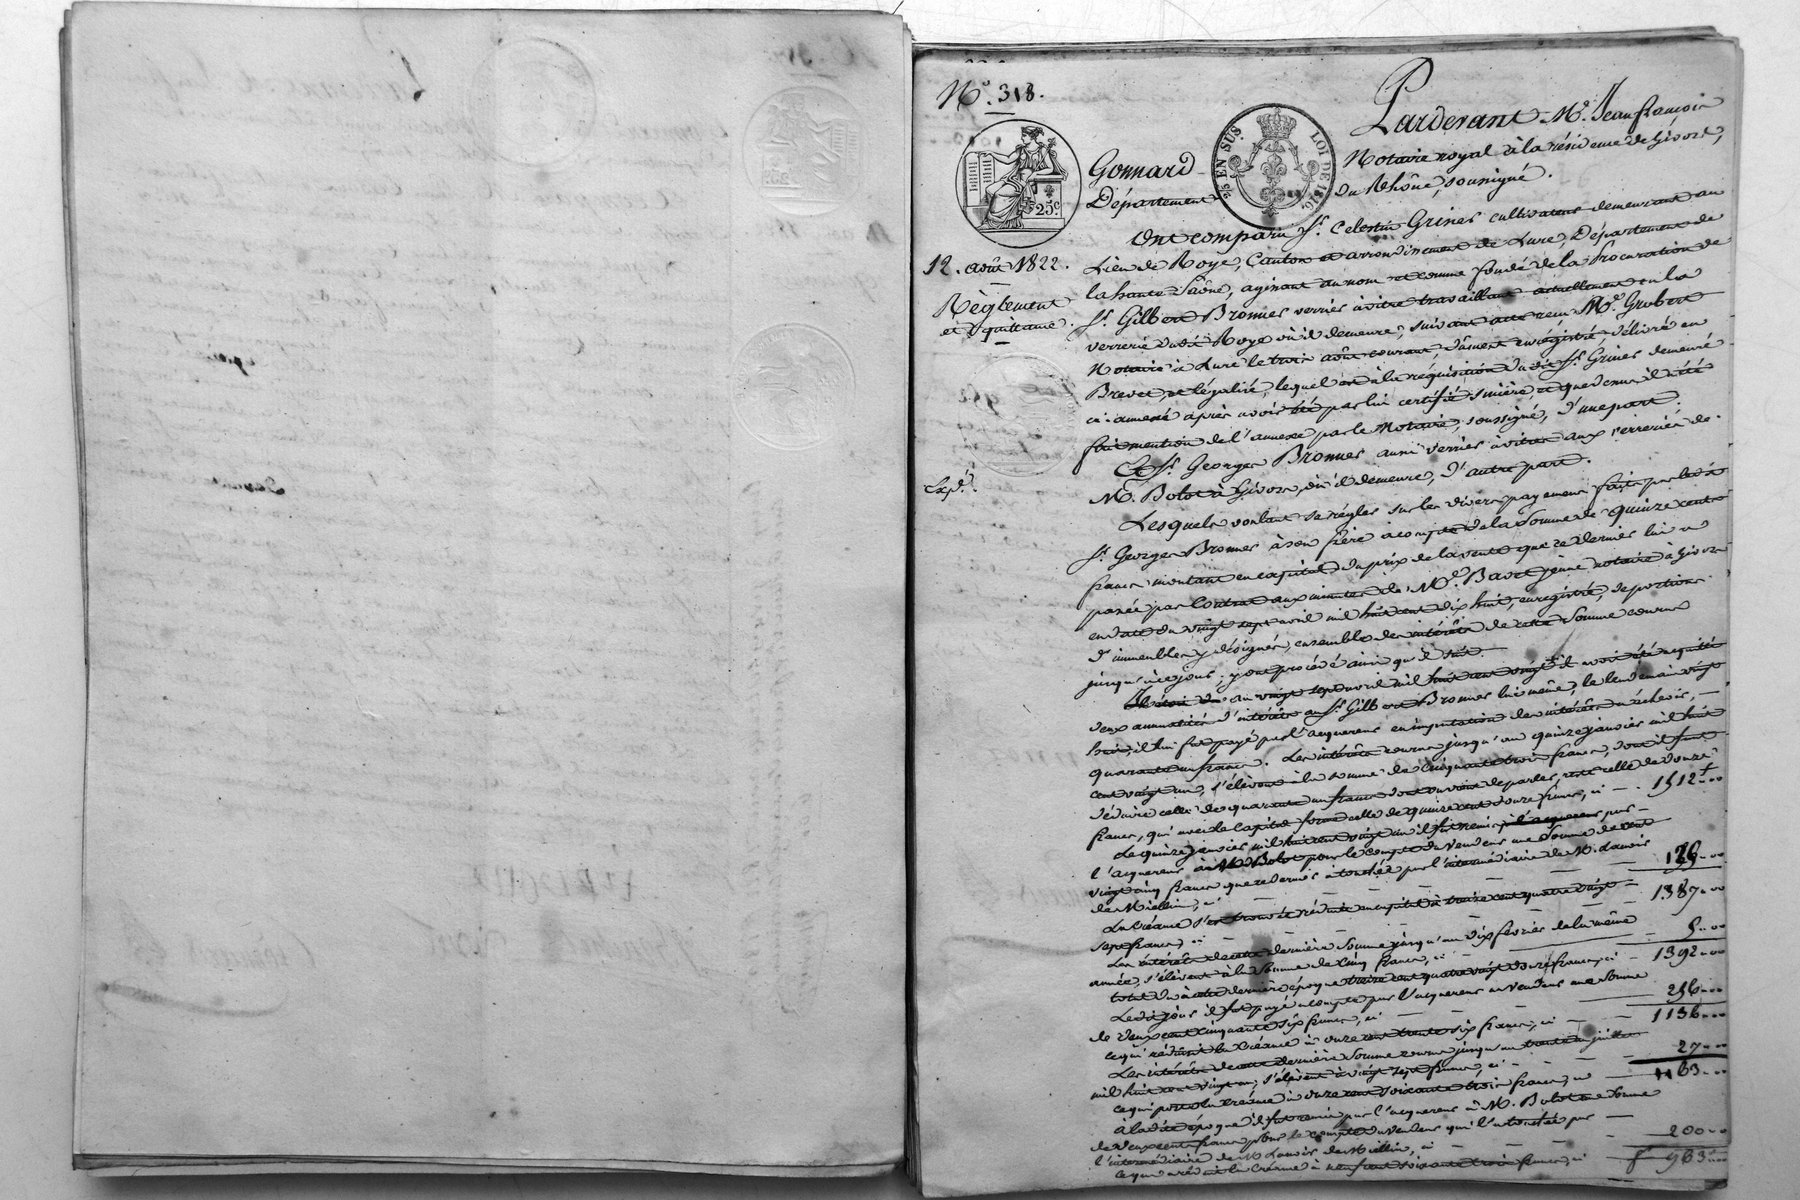 N.° 318.
Pardevant M.e Jean françois
Gonnard Notaire royal à la résidence de Givors,
Département du Rhône, soussigné.
25 EN SUS. LOI DE 1816.
25.c
12. août 1822.
Règlement
et quittance.
Exp.é
Ont comparu S.r Celestin Grines cultivateur demeurant au
Lieu de Roye, Canton et arrondissement de Lure, Département de
la haute Saône, agissant au nom et comme fondé de la Procuration de
S.r Gilbert Bronner verrier à vitre travaillant actuellement en la
verrerie dudit Roye où il demeure, suivant acte reçu M.e Grobert
Notaire à Lure le trois août courant, dûment enregistré, délivré en
Brevet, et légalisé, lequel est à la réquisition dudit S.r Grines demeuré
ci-annexé après avoir été par lui certifié sincère, et que dessus il a été
fait mention de l'annexe par le Notaire, soussigné, d'une part.
Et S.r Georges Bronner aussi verrier à vitres aux verreries de
M. Bolot à Givors, où il demeure, d'autre part.
Lesquels voulant se régler sur les divers payemens faits par led.it
S.r Georges Bronner à son frère à compte de la Somme de quinze cents
francs montant en capital du prix de la vente que ce dernier lui a
passée par Contrat aux minutes de M.e Bavet jeune notaire à Givors
en date du vingt sept avril mil huit cent dix huit, enregistré, de portions
d'immeubles y désignés, ensemble des intérêts de cette Somme courus
jusqu'à ce jour, y ont procédé ainsi qu'il suit.
au vingt sept avril mil huit cent vingt il avoit été acquitté
deux annuités d'intérêts au S.r Gilbert Bronner lui même, le lendemain vingt
huit, il lui fut payé par l'acquereur en imputation des intérêts à échoir,
quarante un francs. Les intérêts courus jusqu'au quinze janvier mil huit
cent vingt un, s'élèvent à la somme de Cinquante trois francs, dont il faut
déduire celle de quarante un francs dont on vient de parler, reste celle de douze
francs, qui avec le Capital forme celle de quinze cent douze francs, ci 1512
Le quinze janvier mil huit cent vingt un il fut remis par
l'acquereur à M. Bolot pour le compte du vendeur une Somme de cent
vingt cinq francs que ce dernier a touchée par l'intermédiaire de M. Lanoir
de Miellin, ci 125
La Créance s'est trouvée réduite en capital à treize cent quatre vingt
sept francs, ci 1387
Les intérêts de cette dernière Somme jusqu'au dix février de la même
année, s'élèvent à la Somme de cinq francs, ci 5
total dû à cette dernière époque treize cent quatre vingt douze francs, ci 1392
Ledit jour il fut payé à compte par l'acquereur au vendeur une Somme
de deux cent cinquante six francs, ci 256
ce qui réduisit la Créance à onze cent trente six francs, ci 1136
Les intérêts de cette dernière Somme courus jusqu'au trente un juillet
mil huit cent vingt un, s'élèvent à vingt sept francs, ci 27
ce qui porte la créance à onze cent soixante trois francs, ci 1163
à ladite époque il fut remis par l'acquereur à M. Bolot une Somme
de deux cent francs pour le compte du vendeur qui l'a touchée par
l'intermédiaire de M. Lanoir de Miellin, ci 200
ce qui a réduit la Créance à neuf cent soixante trois francs, ci f 963